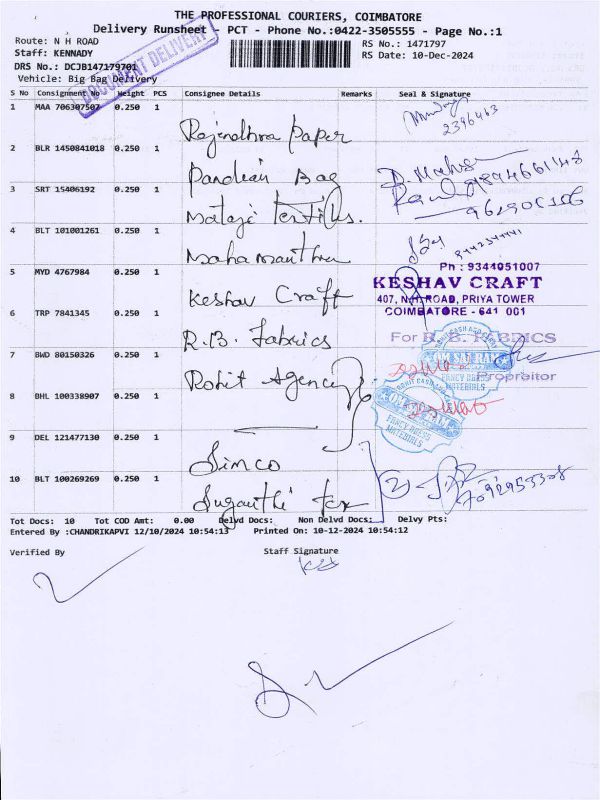 THE PROFESSIONAL COURIERS, COIMBATORE
Delivery Runsheet - PCT - Phone No.:0422-3505555 - Page No.:1
Route: N H ROAD
RS No.: 1471797
Staff: KENNADY
RS Date: 10-Dec-2024
DRS No.: DCJB147179701
Vehicle: Big Bag Delivery
DOCUMENT DELIVERY
S No Consignment No Weight PCS Consignee Details Remarks Seal & Signature
1 MAA 706307507 0.250 1
Rajendhra Paper
2396463
2 BLR 1450841018 0.250 1
Pandian Bag
3 SRT 15406192 0.250 1
Mataji Textiles.
4 BLT 101001261 0.250 1
Mahamanthra
5 MYD 4767984 0.250 1
Keshav Craft
Ph : 9344051007
KESHAV CRAFT
407, N.H. ROAD, PRIYA TOWER
COIMBATORE - 641 001
6 TRP 7841345 0.250 1
R.B. Fabrics
For R. B. FABRICS
Propreitor
7 BWD 80150326 0.250 1
Rohit Agency
OM SAI RAM
FANCY DRESS MATERIALS
8 BHL 100338907 0.250 1
FANCY DRESS MATERIALS
9 DEL 121477130 0.250 1
Simco
10 BLT 100269269 0.250 1
Suganthi Tex
2
7092953308
Tot Docs: 10 Tot COD Amt: 0.00 Delvd Docs: Non Delvd Docs: Delvy Pts:
Entered By :CHANDRIKAPVI 12/10/2024 10:54:13 Printed On: 10-12-2024 10:54:12
Verified By
Staff Signature